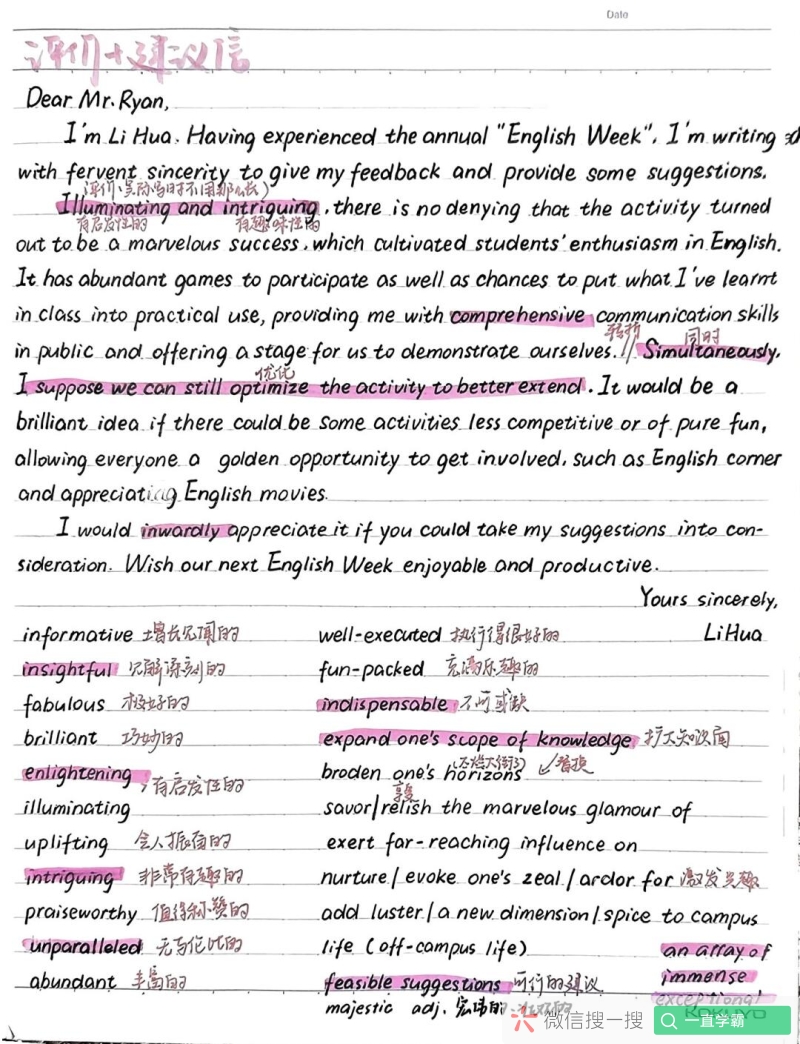 Date
评价+建议信
Dear Mr. Ryan,
I'm Li Hua. Having experienced the annual "English Week", I'm writing
with fervent sincerity to give my feedback and provide some suggestions.
(评价、实际写时不用那么长)
Illuminating and intriguing, there is no denying that the activity turned
有启发性的 有趣味性的
out to be a marvelous success, which cultivated students' enthusiasm in English.
It has abundant games to participate as well as chances to put what I've learnt
in class into practical use, providing me with comprehensive communication skills
转折 同时
in public and offering a stage for us to demonstrate ourselves. // Simultaneously,
优化
I suppose we can still optimize the activity to better extend. It would be a
brilliant idea if there could be some activities less competitive or of pure fun,
allowing everyone a golden opportunity to get involved, such as English corner
and appreciating English movies.
I would inwardly appreciate it if you could take my suggestions into con-
sideration. Wish our next English Week enjoyable and productive.
Yours sincerely,
Li Hua
informative 增长见闻的
insightful 见解深刻的
fabulous 极好的
brilliant 巧妙的
enlightening, 有启发性的
illuminating
uplifting 令人振奋的
intriguing 非常有趣的
praiseworthy 值得称赞的
unparalleled 无与伦比的
abundant 丰富的
well-executed 执行得很好的
fun-packed 充满乐趣的
indispensable 不可或缺
expand one's scope of knowledge 扩大知识面
broden one's horizons ↙替换
享受
savor/relish the marvelous glamour of
exert far-reaching influence on
nurture/evoke one's zeal/ardor for 激发兴趣
add luster/a new dimension/spice to campus
life (off-campus life)
feasible suggestions 可行的建议
majestic adj. 宏伟的
an array of
immense
exceptional
KOKUYO
微信搜一搜
一直学霸